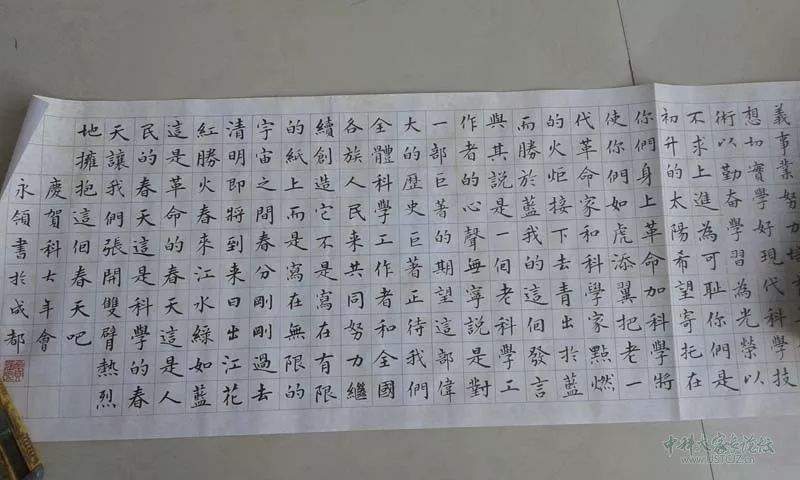 義事業努力培
想切實學好現代科學技
術以勤奮學習為光榮以
不求上進為可恥你們是
初升的太陽希望寄托在
你們身上革命加科學將
使你們如虎添翼把老一
代革命家和科學家點燃
的火炬接下去青出於藍
而勝於藍我的這個發言
與其說是一個老科學工
作者的心聲無寧說是對
一部巨著的期望這部偉
大的歷史巨著正待我們
全體科學工作者和全國
各族人民來共同努力繼
續創造它不是寫在有限
的紙上而是寫在無限的
宇宙之間春分剛剛過去
清明即將到来日出江花
紅勝火春來江水綠如藍
這是革命的春天這是人
民的春天這是科學的春
天讓我們張開雙臂熱烈
地擁抱這個春天吧
慶賀科大年會
永領書於成都
中科大家长论坛
www.USTCJZ.cn